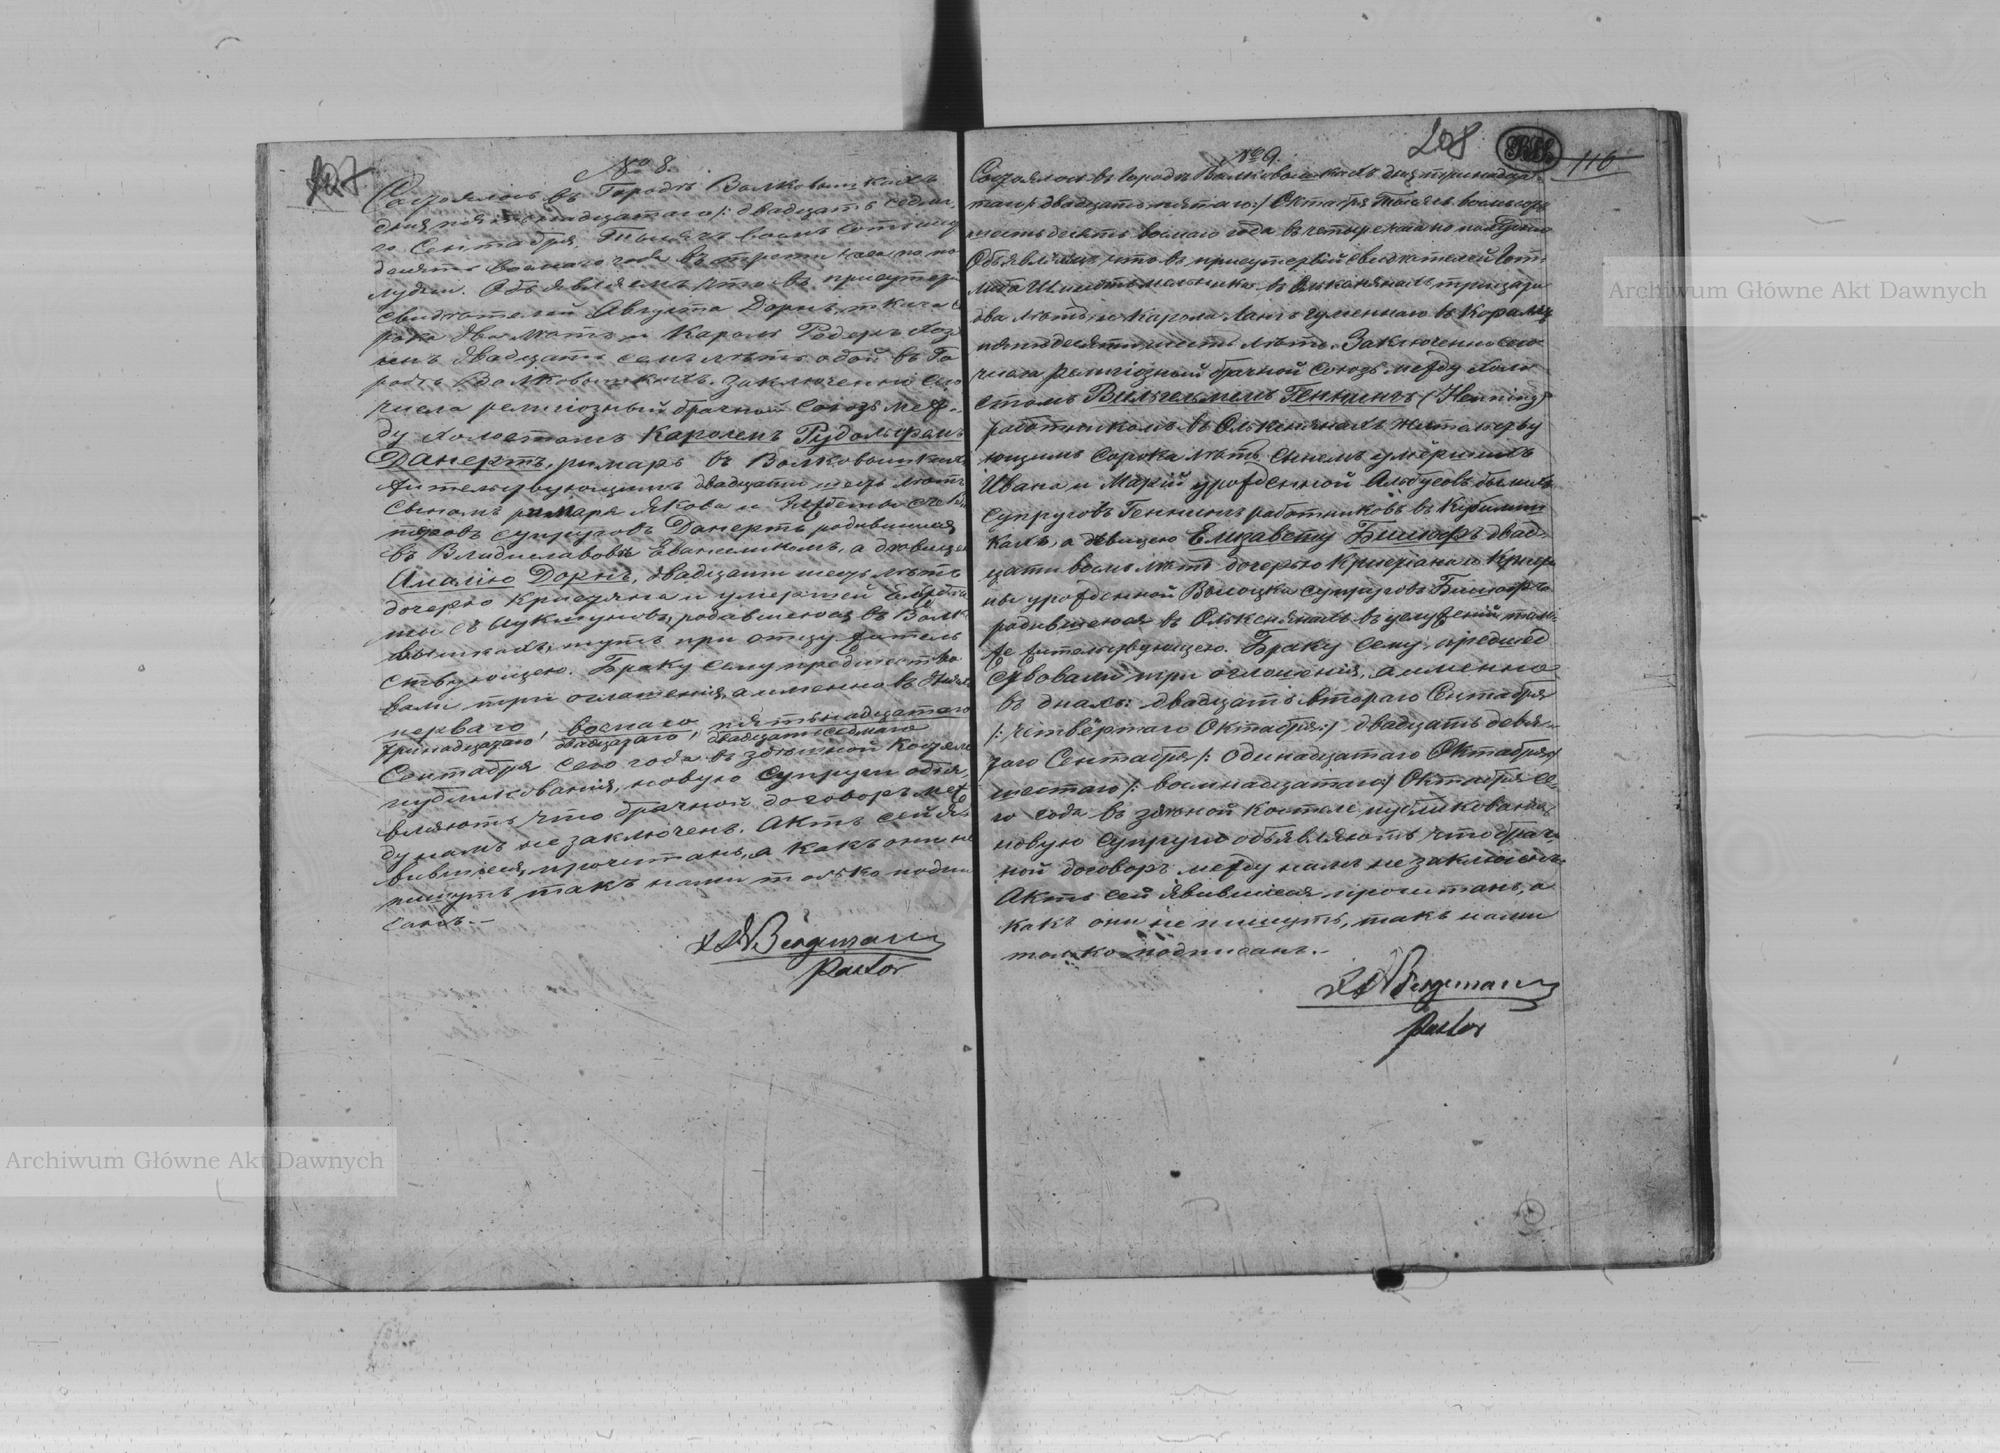 207
№ 8.
Состоялось въ Городѣ Волковышкахъ
дня пятнадцатаго /: двадцать седма-
го Сентября, Тысяча восемь сотъ шесть
десятъ восмаго года въ третіи часа по по
лудни. Объявляемъ, что въ присутствіи
свидѣтелей Августа Дорнъ, ткача со
рока два лѣтъ и Кароля Редеръ
двадцати семь лѣтъ обой въ Го
родѣ Волковышкахъ. Заключенно сего
числа религіозный брачной союзъ меж-
ду холостомъ Каролемъ Рудольфомъ
Данертъ, римарь въ Волковышкахъ
жительствующимъ двадцати шесть лѣтъ
сыномъ римаря Якова и Елжбеты
супруговъ Данертъ родившимся
въ Владиславовѣ Евангеликомъ, а дѣвицею
Амалію Дорнъ, двадцати шесть лѣтъ
дочерью Кристяна и умершей
родившеюся въ Волко
вышкахъ, тутъ при отцу житель
ствующею. Браку сему предшество
вали три оглашенія, а именно въ дняхъ
перваго, восмаго, пятнадцатаго
тринадцатаго, двадцатаго, двадцати седмаго
Сентября сего года въ здѣшной Костеле
публикованія, новую Супруги объя
вляютъ что брачной договоръ меж
ду намъ не заключенъ. Актъ сей яв
вившимся, прочитанъ, а какъ они не
пишутъ такъ нами только подпи
санъ.-
Bergmann
Pastor
208
116
№ 9.
Состоялось въ городѣ Волковышкахъ дня тринадца-
таго /: двадцать пятаго :/ Октября Тысяча восемьсотъ
шестьдесятъ восмаго года въ четыре часа по полудню
Объявляемъ, что въ присутствій свидѣтелей Гот
либа Шмидтъ въ Олькенянахъ тридцати
два лѣтъ, и Кароля Лангъ
пятьдесяти шесть лѣтъ. Заключенно сего
числа религіозный брачной союзъ между холо
стомъ Вильгельмомъ Геннингъ (Henning)
работникомъ въ Олькенянахъ жительству
ющимъ сорока лѣтъ сыномъ умершихъ
Ивана и Марій урожденной Альбусовъ бывшихъ
супруговъ Геннингъ работниковъ въ
кахъ, а дѣвицею Елизавету Бишофъ двад-
цати восмь лѣтъ дочерью Кристіана и Кристи
ны урожденной Высоцка супруговъ
родившеюся въ Олькенянахъ въ услуженій там-
же жительствующею. Браку сему предшед
ствовали три оглошенія, а именно
въ дняхъ: двадцать втораго Сентября
/: четвёртаго Октября :/ двадцать девя-
таго Сентября /: одинадцатаго Октября :/
шестаго /: восмнадцатаго :/ Октября се-
го года въ здѣшной Костеле публикованія,
новую Супруги объявляютъ, что брач-
ной договоръ между намъ не заключенъ.
Актъ сей явившимся прочитанъ, а
какъ они не пишутъ, такъ нами
только подписанъ.-
Bergmann
Pastor
Archiwum Główne Akt Dawnych
Archiwum Główne Akt Dawnych